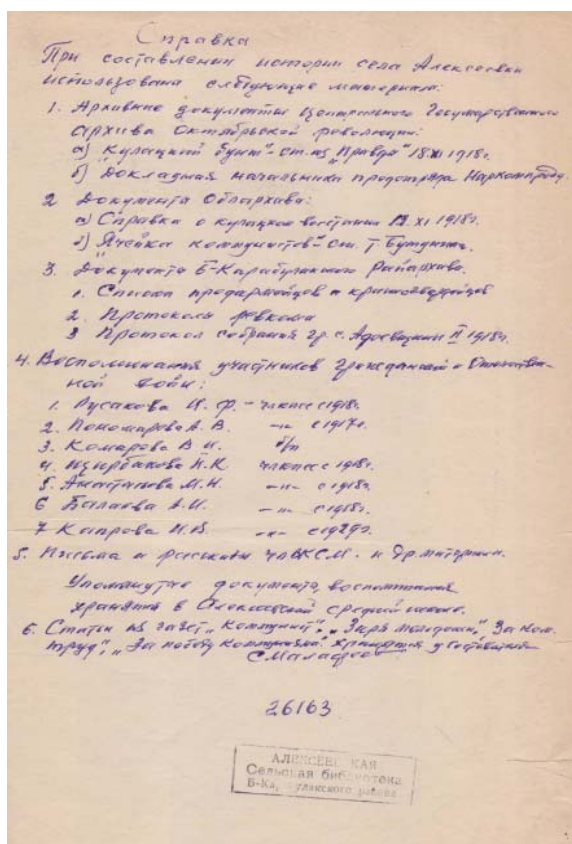 Справка
При составлении истории села Алексеевки
использованы следующие материалы:
1. Архивные документы Центрального Государственного
архива Октябрьской революции:
а) "Кулацкий бунт" - ст. из "Правды" 18 XI 1918г.
б) Докладная начальника продотряда Наркомпроду.
2 Документы Облархива:
а) Справка о кулацком восстании XI 1918г.
б) "Ячейка коммунистов" - ст. Т
3. Документы Б-Карабулакского Райархива.
1. Списки продармейцев и красногвардейцев
2. Протоколы ревкома
3 Протокол собрания гр. с. 1918г.
4. Воспоминания участников гражданской и Отечествен-
ной войн:
1. Русакова И. Ф. - чл кпсс с 1918г.
2. Пономарева А. В. -"- с 1917г.
3. Комарова В И. б/п
4. К чл кпсс с 1918г.
5. М. Н. -"- с 1918г.
6 А. И. -"- с 1918г.
7 Капрова И. В. -"- с 1929г.
5. Письма и рассказы чл ВЛКСМ. и др. материалы.
Упомянутые документы, воспоминания
хранятся в Алексеевской средней школе.
6. Статьи из газет "Коммунист", "Заря молодежи", "За ком.
труд", "За победу коммунизма" хранятся у составителя
26163
АЛЕКСЕЕВСКАЯ
Сельская библиотека
района